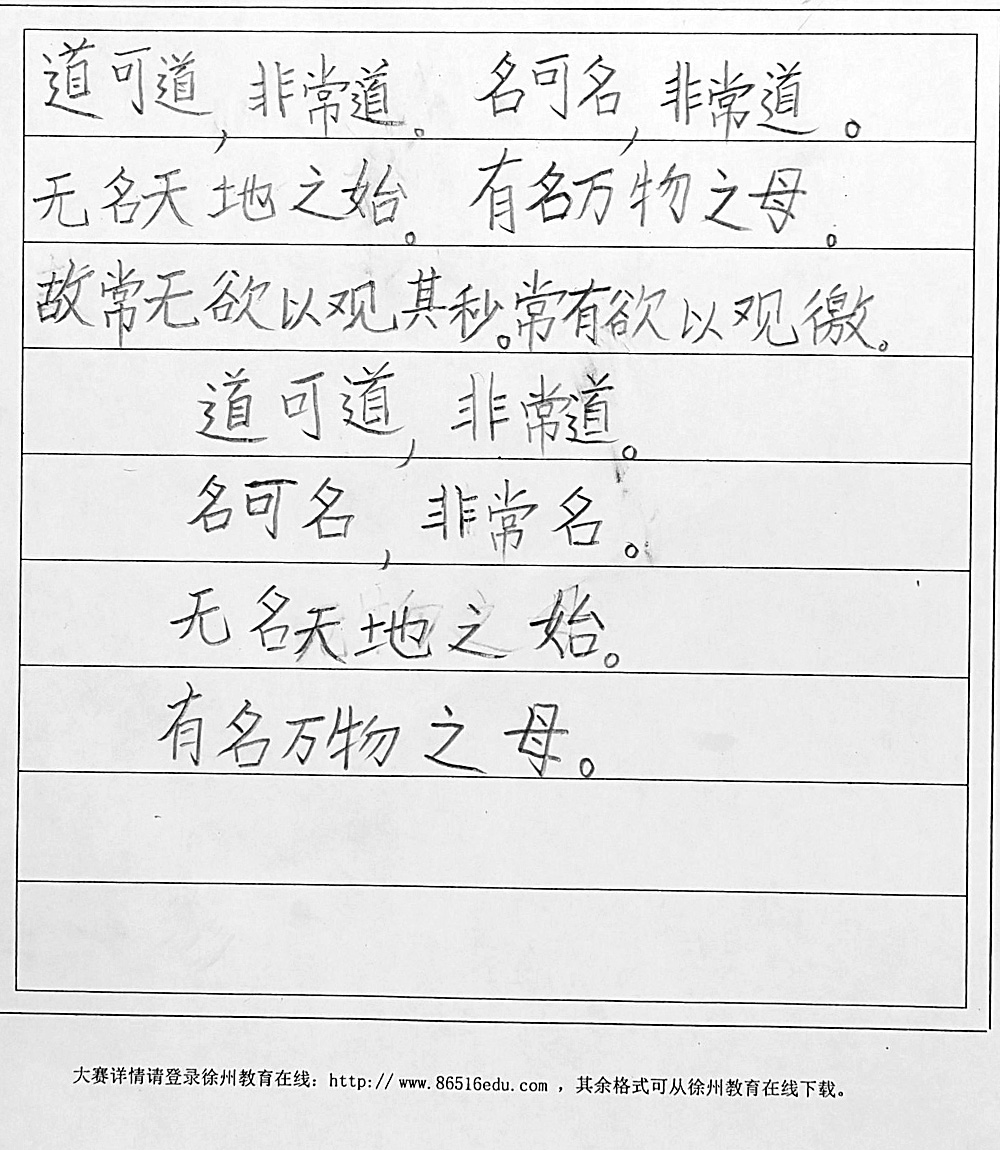 道可道,非常道。名可名,非常道。
无名天地之始。有名万物之母。
故常无欲以观其秒。常有欲以观徼。
道可道,非常道。
名可名,非常名。
无名天地之始。
有名万物之母。
大赛详情请登录徐州教育在线：http://www.86516edu.com，其余格式可从徐州教育在线下载。